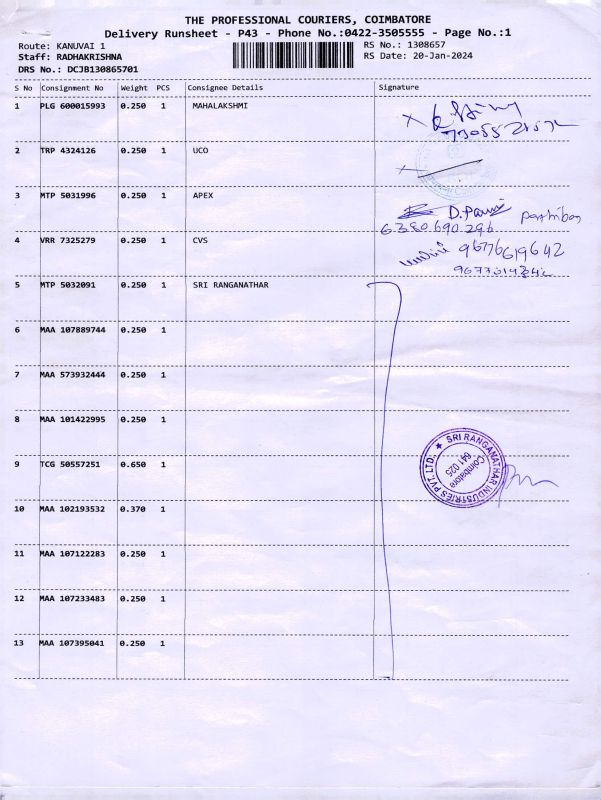 THE PROFESSIONAL COURIERS, COIMBATORE
Delivery Runsheet - P43 - Phone No.:0422-3505555 - Page No.:1
Route: KANUVAI 1
RS No.: 1308657
Staff: RADHAKRISHNA
RS Date: 20-Jan-2024
DRS No.: DCJB130865701
S No Consignment No Weight PCS Consignee Details Signature
1 PLG 600015993 0.250 1 MAHALAKSHMI
2 TRP 4324126 0.250 1 UCO
3 MTP 5031996 0.250 1 APEX
D.Pavi
6380690296
4 VRR 7325279 0.250 1 CVS
9677619642
5 MTP 5032091 0.250 1 SRI RANGANATHAR
6 MAA 107889744 0.250 1
7 MAA 573932444 0.250 1
8 MAA 101422995 0.250 1
9 TCG 50557251 0.650 1
SRI RANGANATHAR INDUSTRIES PVT. LTD.
Coimbatore
641 025
10 MAA 102193532 0.370 1
11 MAA 107122283 0.250 1
12 MAA 107233483 0.250 1
13 MAA 107395041 0.250 1